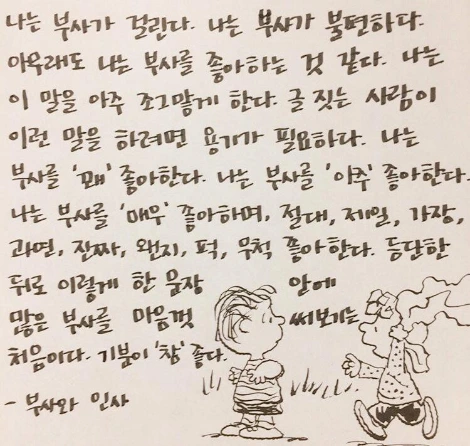 나는 부사가 걸린다. 나는 부사가 불편하다.
아무래도 나는 부사를 좋아하는 것 같다. 나는
이 말을 아주 조그맣게 한다. 글 짓는 사람이
이런 말을 하려면 용기가 필요하다. 나는
부사를 '꽤' 좋아한다. 나는 부사를 '아주' 좋아한다.
나는 부사를 '매우' 좋아하며, 절대, 제일, 가장,
과연, 진짜, 왠지, 퍽, 무척 좋아한다. 등단한
뒤로 이렇게 한 문장 안에
많은 부사를 마음껏 써보기는
처음이다. 기분이 '참' 좋다.
- 부사와 인사